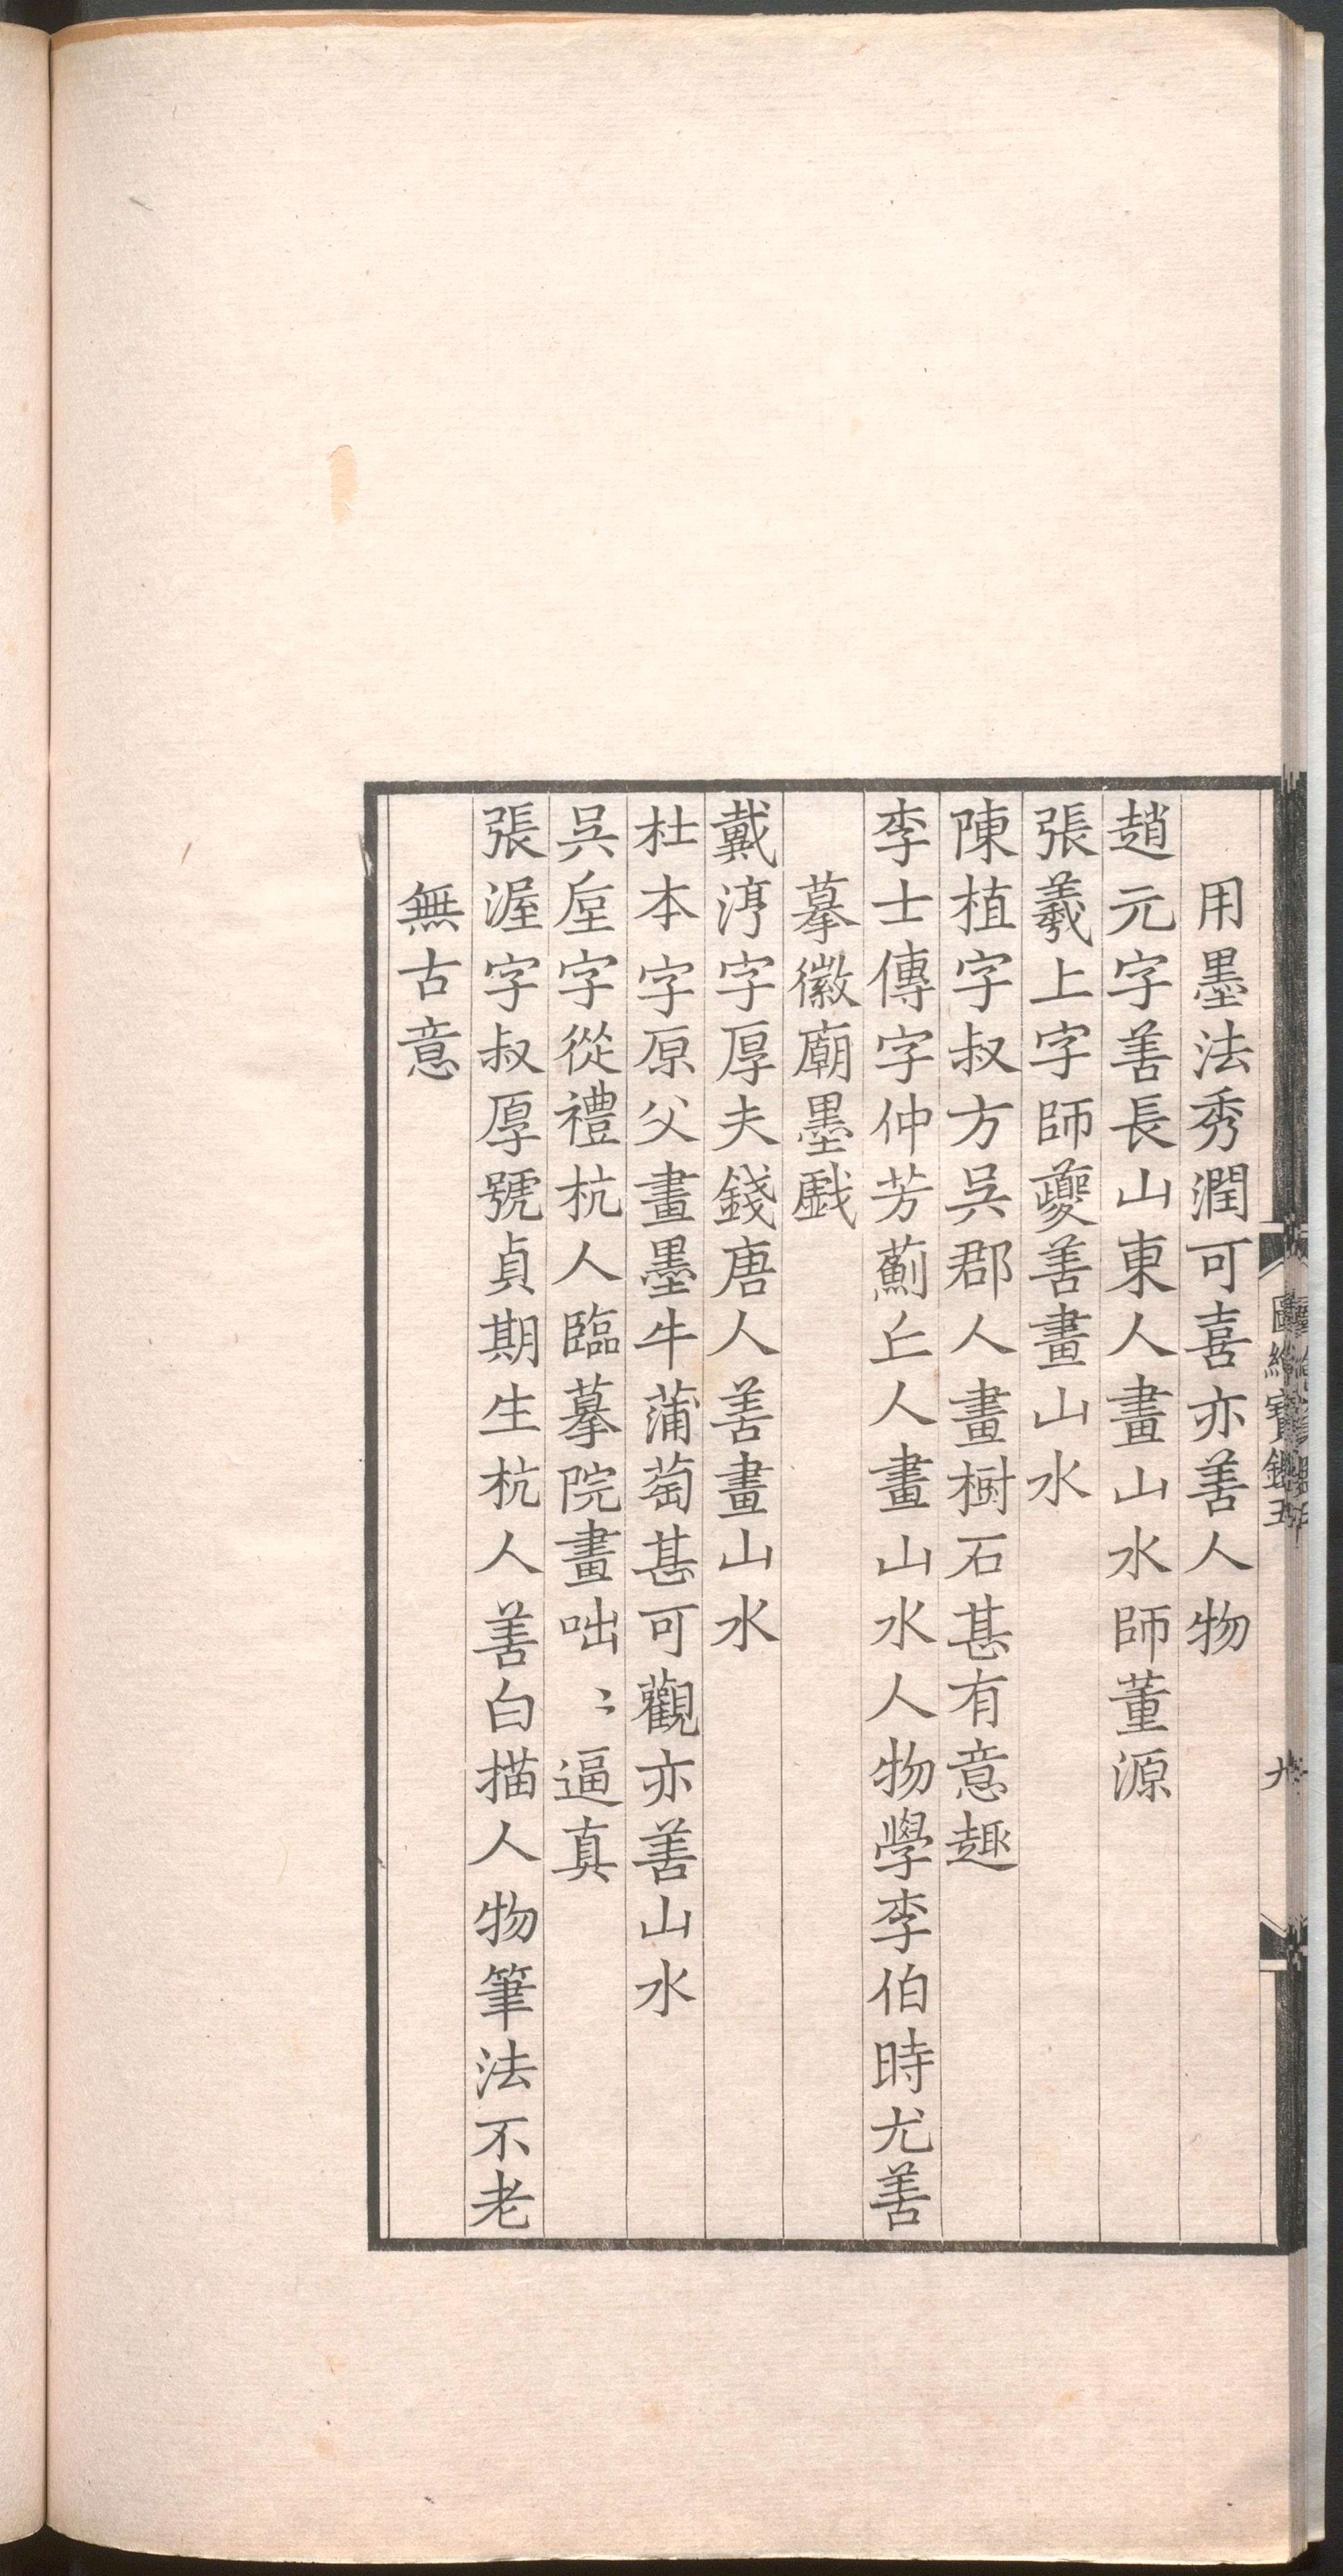 圖繪寶鑑五
九
用墨法秀潤可喜亦善人物
趙元字善長山東人畫山水師董源
張羲上字師夔善畫山水
陳植字叔方吳郡人畫樹石甚有意趣
李士傳字仲芳薊丘人畫山水人物學李伯時尤善
摹徽廟墨戲
戴淳字厚夫錢唐人善畫山水
杜本字原父畫墨牛蒲萄甚可觀亦善山水
吳庭字從禮杭人臨摹院畫咄〻逼真
張渥字叔厚號貞期生杭人善白描人物筆法不老
無古意